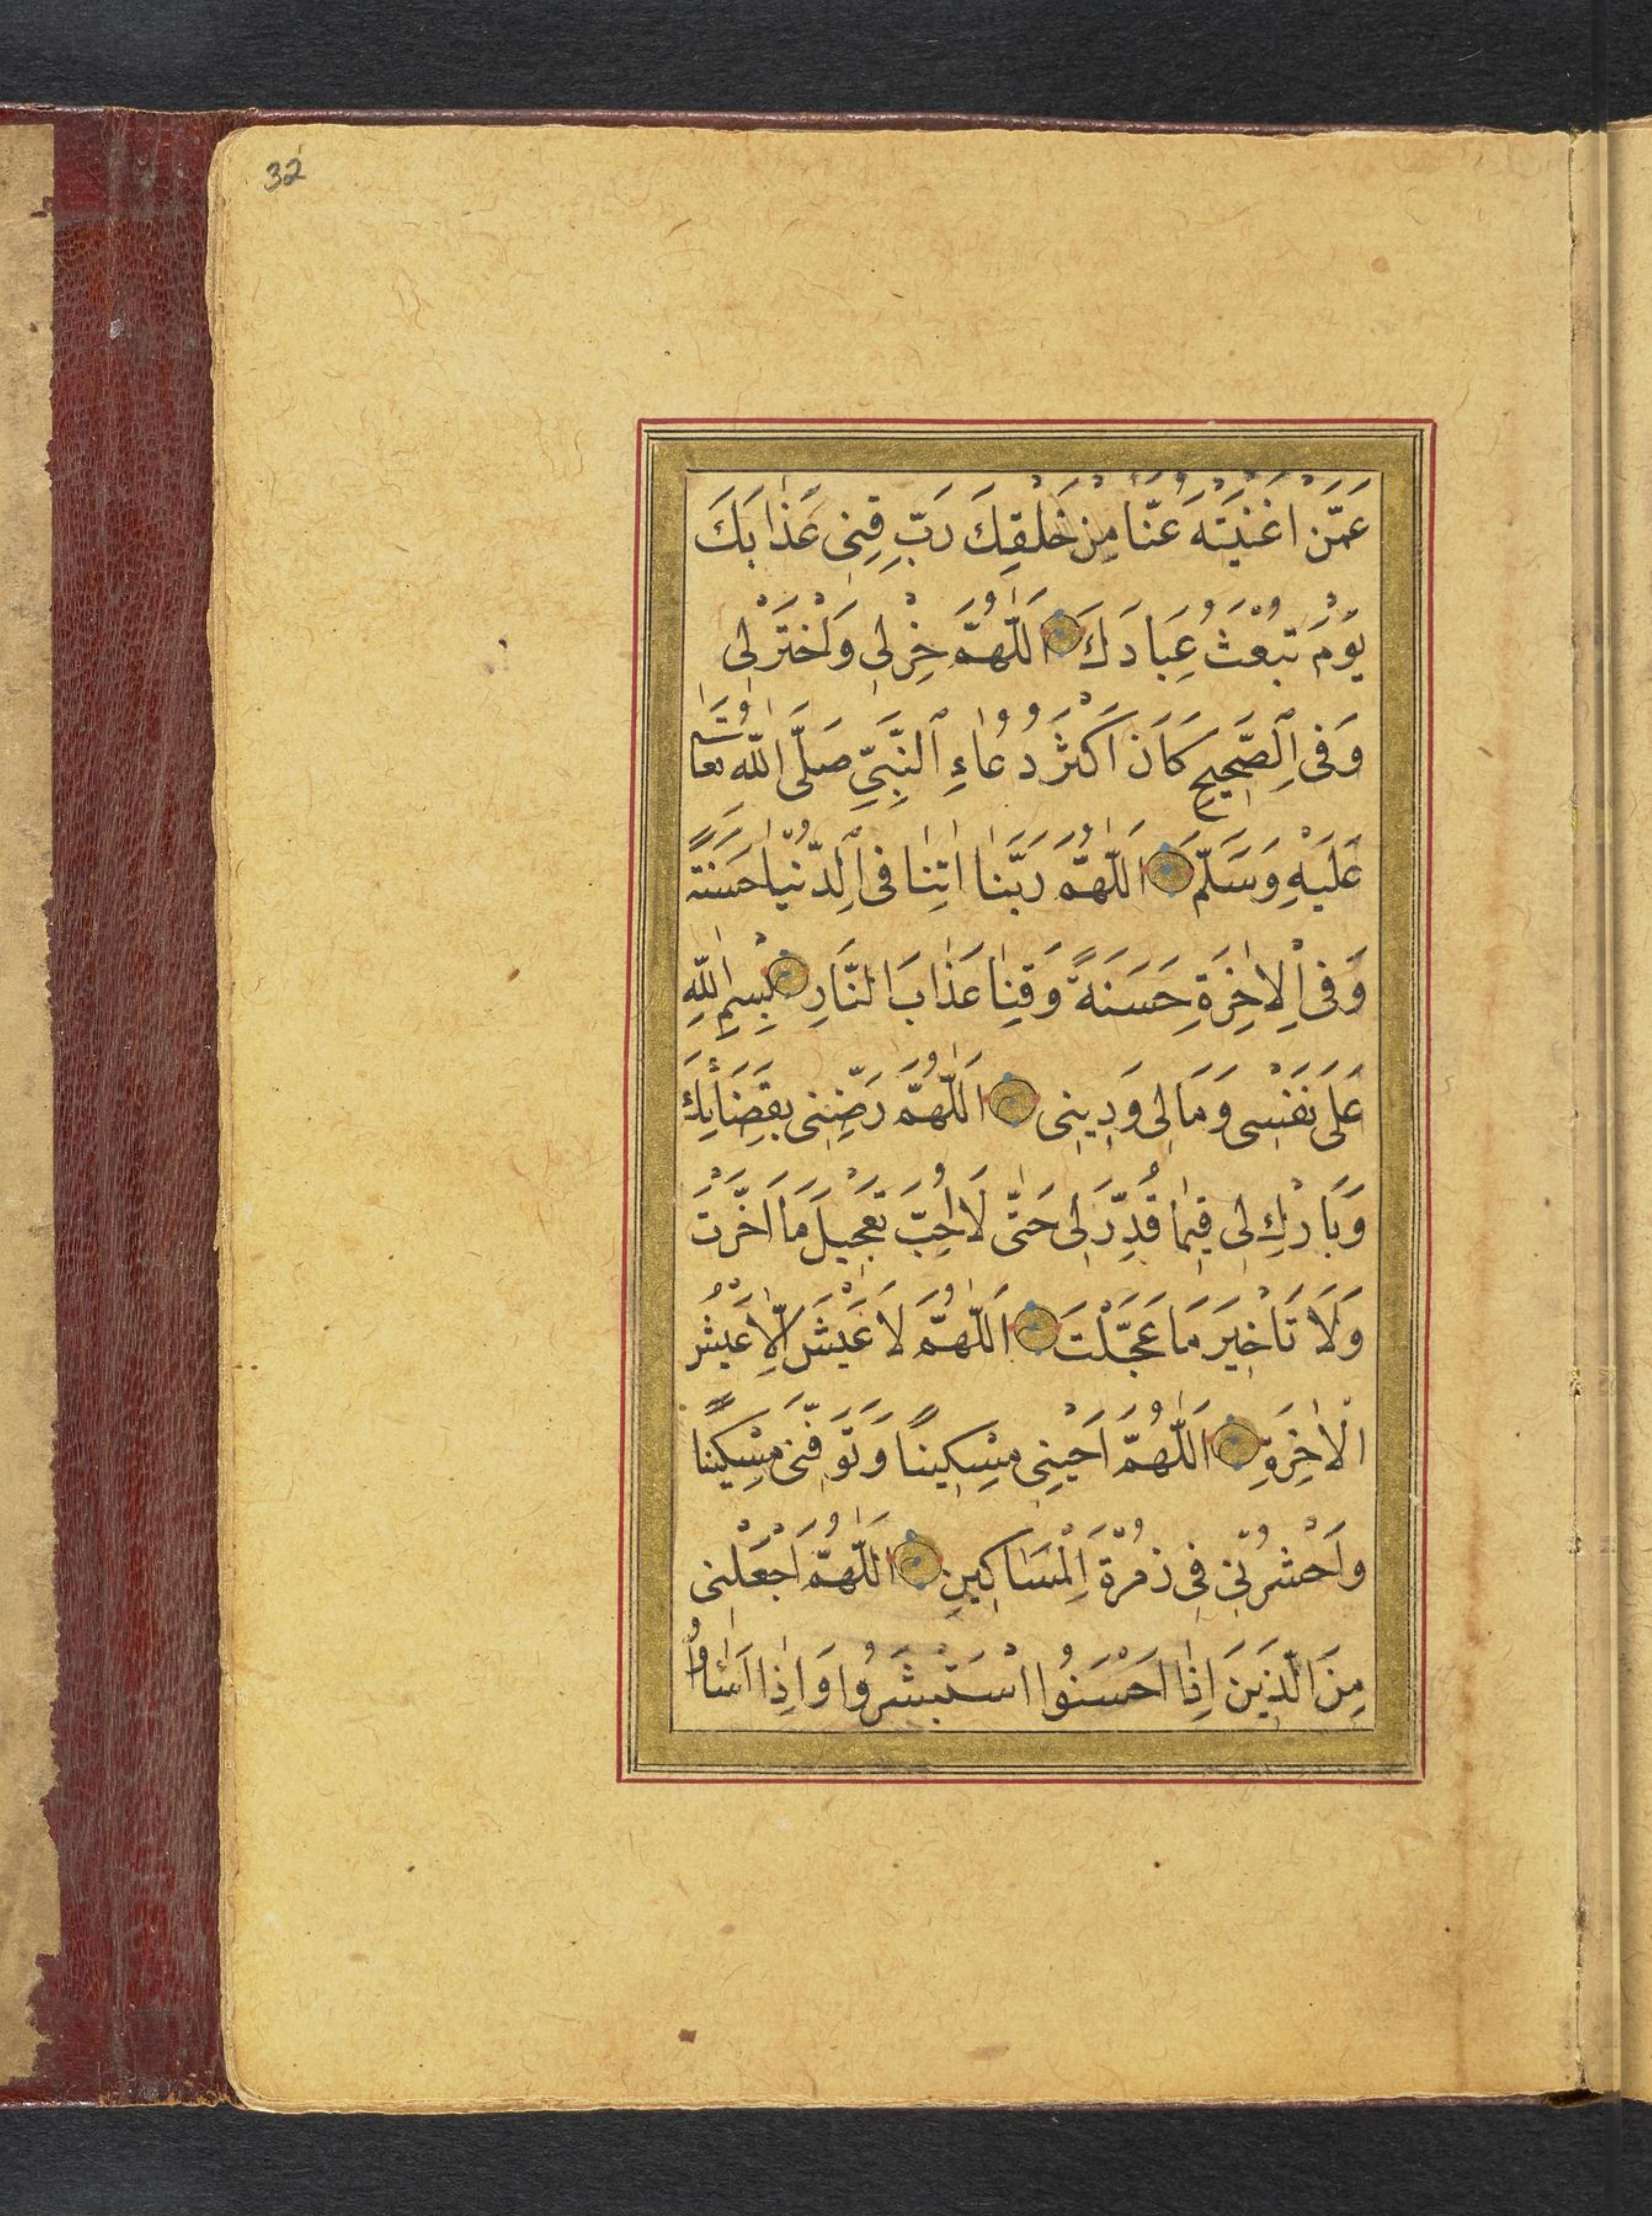 32
عَمَّنْ اَغْنَيْتَهُ عَنَّا مِنْ خَلْقِكَ رَبِّ قِنِى عَذَابَكَ
يَوْمَ تَبْعَثُ عِبَادَكَ اَللّٰهُمَّ خِرْلِى وَاخْتَرْلِى
وَفِى الصَّحِيحِ كَانَ اَكْثَرُ دُعَاءِ النَّبِىِّ صَلَّى اللّٰهُ تعا
عَلَيْهِ وَسَلَّمَ اَللّٰهُمَّ رَبَّنَا اٰتِنَا فِى الدُّنْيَا حَسَنَةً
وَفِى الْاٰخِرَةِ حَسَنَةً وَقِنَا عَذَابَ النَّارِ بِسْمِ اللّٰهِ
عَلَى نَفْسِى وَمَالِى وَدِينِى اَللّٰهُمَّ رَضِّنِى بِقَضَائِكَ
وَبَارِكْ لِى فِيمَا قُدِّرَ لِى حَتّٰى لَا اُحِبَّ تَعْجِيلَ مَا اَخَّرْتَ
وَلَا تَاْخِيرَ مَا عَجَّلْتَ اَللّٰهُمَّ لَا عَيْشَ اِلَّا عَيْشُ
الْاٰخِرَةِ اَللّٰهُمَّ اَحْيِنِى مِسْكِينًا وَتَوَفَّنِى مِسْكِينًا
وَاحْشُرْنِى فِى زُمْرَةِ الْمَسَاكِينِ اَللّٰهُمَّ اجْعَلْنِى
مِنَ الَّذِينَ اِذَا اَحْسَنُوا اسْتَبْشَرُوا وَاِذَا اَسَاؤُا